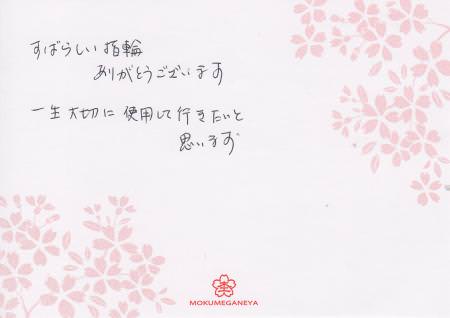 すばらしい指輪
ありがとうございます
一生大切に使用して行きたいと
思います
MOKUMEGANEYA